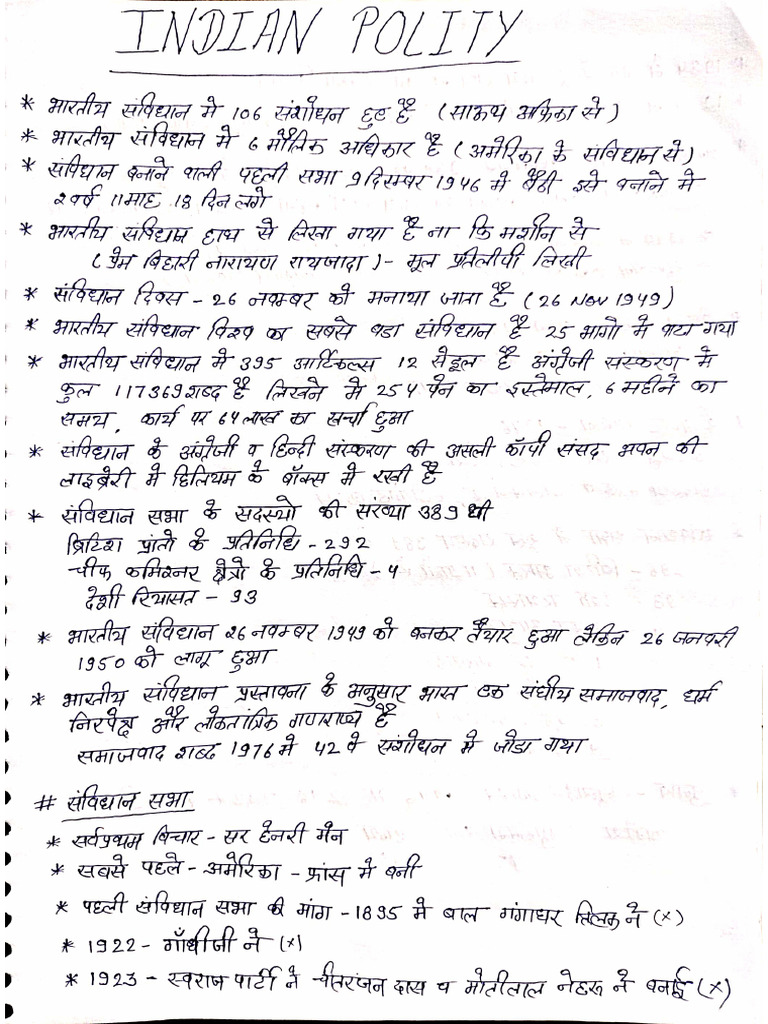 INDIAN POLITY
* भारतीय संविधान मे 106 संशोधन हुए है (साऊथ अफ्रिका से)
* भारतीय संविधान मे 6 मौलिक अधिकार है (अमेरिका के संविधान से)
* संविधान बनाने वाली पहली सभा 9 दिसम्बर 1946 मे बैठी इसे बनाने मे
2 वर्ष 11 माह 18 दिन लगे
* भारतीय संविधान हाथ से लिखा गया है ना कि मशीन से
(प्रेम बिहारी नारायण रायजादा) - मूल प्रतिलीपी लिखी
* संविधान दिवस - 26 नवम्बर को मनाया जाता है (26 Nov 1949)
* भारतीय संविधान विश्व का सबसे बडा संविधान है 25 भागो मे बाटा गया
* भारतीय संविधान मे 395 आर्टिकल्स 12 सेडूल है अंग्रेजी संस्करण मे
कुल 117369 शब्द है लिखने मे 254 पेन का इस्तेमाल, 6 महीने का
समय, कार्य पर 64 लाख का खर्चा हुआ
* संविधान के अंग्रेजी व हिन्दी संस्करण की असली कॉपी संसद भवन की
लाइब्रेरी मे हिलियम के बॉक्स मे रखी है
* संविधान सभा के सदस्यो की सख्या 389 थी
ब्रिटिश प्रांतो के प्रतिनिधि - 292
चीफ कमिश्नर क्षेत्रो के प्रतिनिधि - 4
देशी रियासत - 93
* भारतीय संविधान 26 नवम्बर 1949 को बनकर तैयार हुआ लेकिन 26 जनवरी
1950 को लागू हुआ
* भारतीय संविधान प्रस्तावना के अनुसार भारत एक संघीय समाजवाद, धर्म
निरपेक्ष और लोकतांत्रिक गणराज्य है
समाजवाद शब्द 1976 मे 42 वे संशोधन मे जोडा गया
# संविधान सभा
* सर्वप्रथम विचार - सर हेनरी मैन
* सबसे पहले - अमेरिका - फ्रांस मे बनी
* पहली संविधान सभा की मांग - 1895 मे बाल गंगाधर तिलक ने (x)
* 1922 - गाँधीजी ने (x)
* 1923 - स्वराज पार्टी ने चीतरंजन दास व मोतीलाल नेहरू ने बनाई (x)